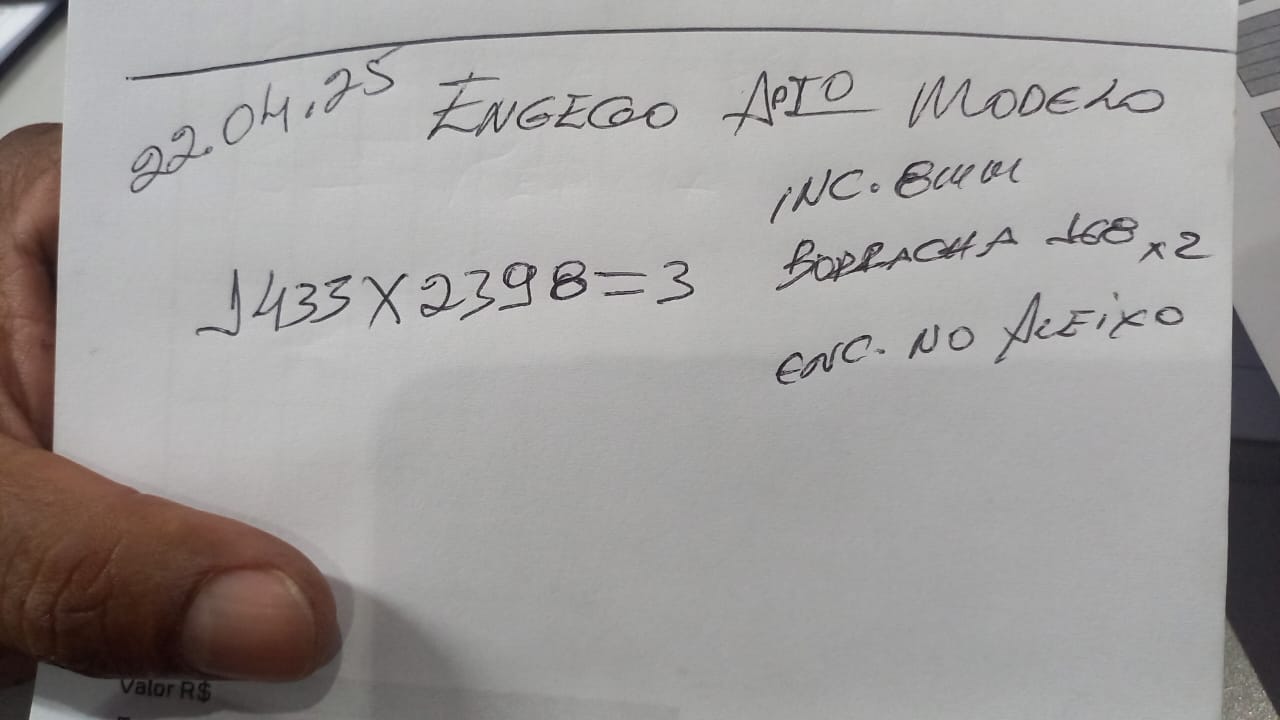 22.04.25 ENGECO APTO MODELO
INC. 8mm
1433X2398=3
BORRACHA 168 x2
ENC. NO ALEIXO
Valor R$